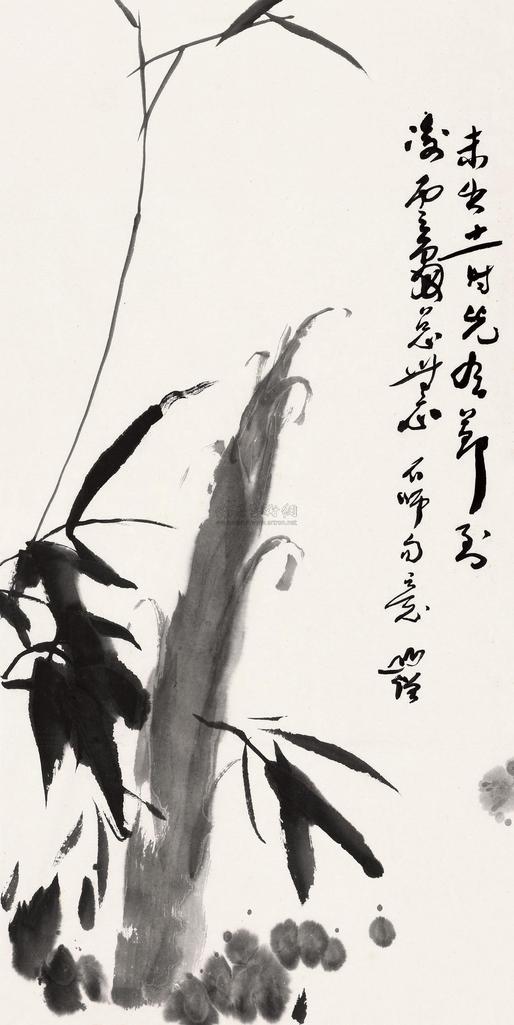 未出土时先有节到
凌云处总无心 石师句意
www.artron.net